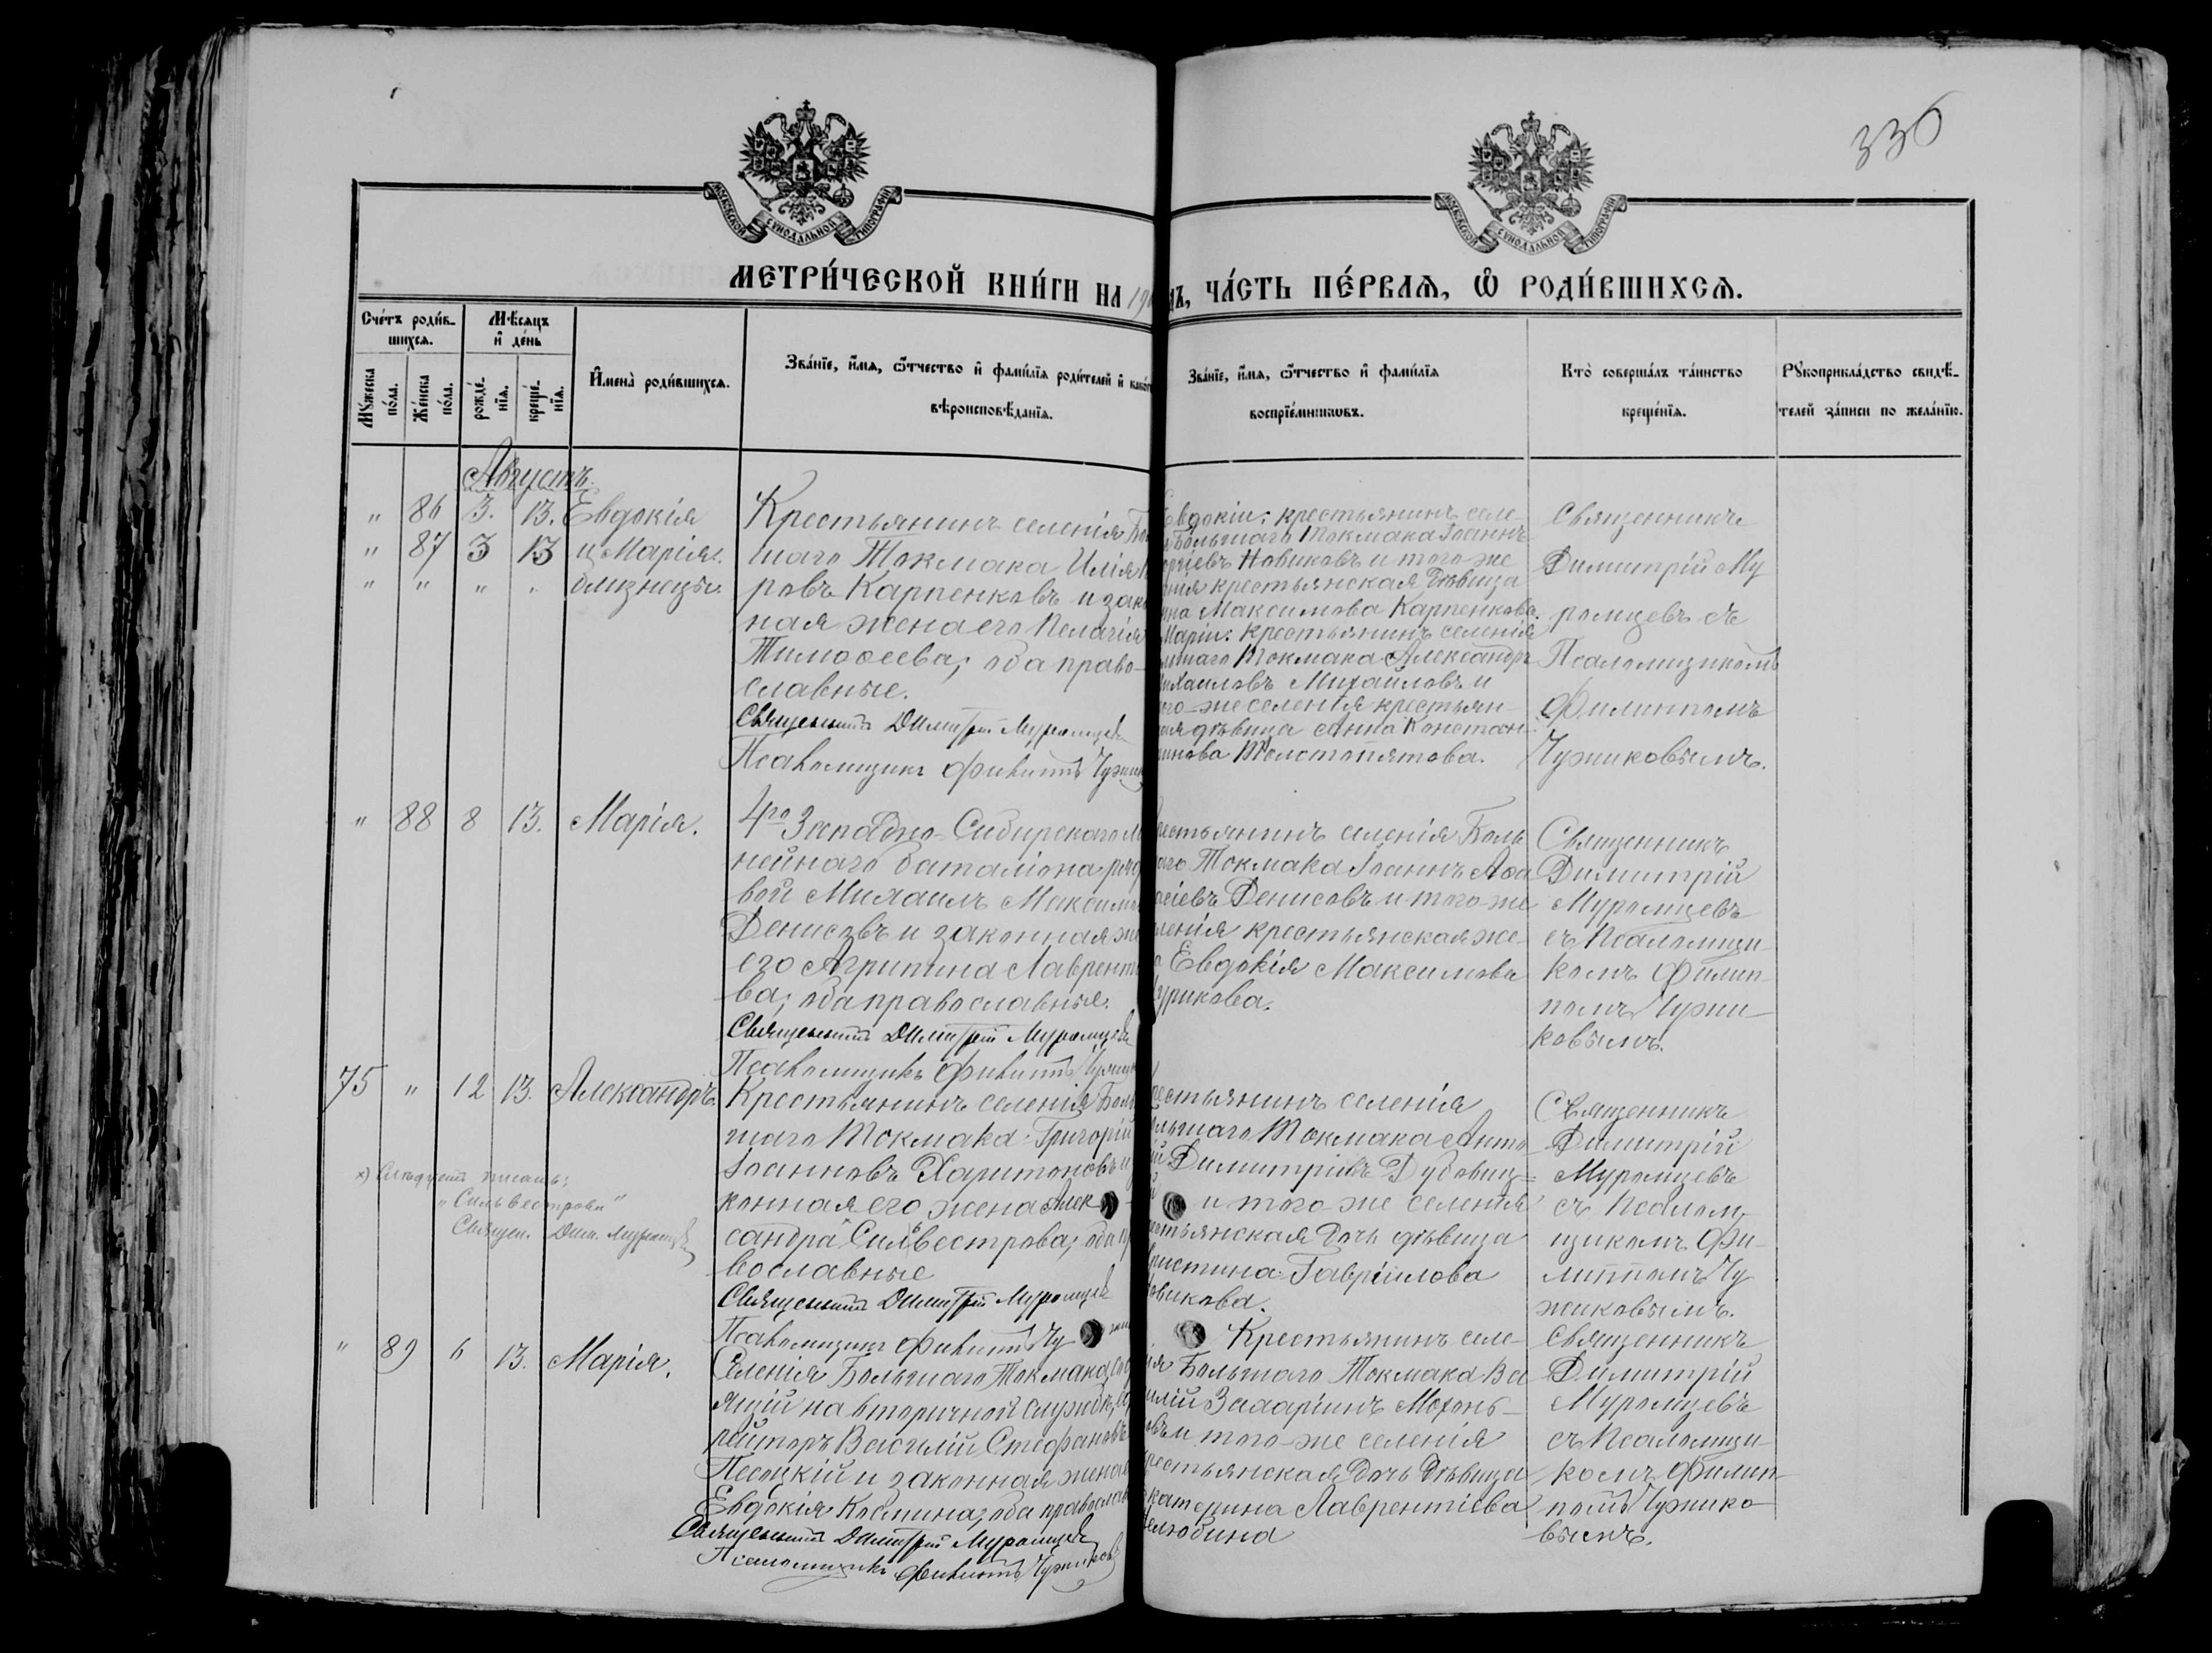 336
МОСКОВСКОЙ СѴНОДАЛЬНОЙ ТИПОГРАФІИ
МОСКОВСКОЙ СѴНОДАЛЬНОЙ ТИПОГРАФІИ
МЕТРИ́ЧЕСКОЙ КНИ́ГИ НА 19
ЧА́СТЬ ПЕ́РВАѦ, Ѡ҆ РОДИ́ВШИХСѦ.
Сче́тъ роди́в-
шихсѧ.
Мѣ́сѧцъ
и҆ де́нь
Мꙋ́жеска
по́ла.
Же́нска
по́ла.
рожде́-
нїѧ.
креще́-
нїѧ.
И҆мена̀ роди́вшихсѧ.
Зва́нїе, и҆́мѧ, ѻ҆́тчество и҆ фами́лїѧ роди́телей и҆
вѣроисповѣ́данїѧ.
Зва́нїе, и҆́мѧ, ѻ҆́тчество и҆ фами́лїѧ
воспрїе́мниковъ.
Кто̀ соверша́лъ та́инство
креще́нїѧ.
Рꙋкоприкла́дство свидѣ́-
телей за́писи по жела́нїю.
Августъ.
" 86 3. 13. Евдокія
" 87 3 13 и Марія.
" " " " близнецы.
Крестьянинъ селенія Бо
шаго Токмака Илія
ровъ Карпенковъ и зако
ная жена его Пелагія
Тимоѳеева; оба право-
славные.
Священникъ Димитрій Муромцевъ
Псаломщикъ Филиппъ Чужик
Евдокіи: крестьянинъ селе-
Большаго Токмака Іоаннъ
ергіевъ Новиковъ и того-же
енія крестьянская дѣвица
Максимова Карпенкова.
Маріи: Крестьянинъ селенія
льшаго Токмака Александръ
ихаиловъ Михайловъ и
ого-же селенія крестьян-
кая дѣвица Анна Констан-
инова Толстопятова.
Священникъ
Димитрій Му
ромцевъ съ
Псаломщикомъ
Филиппомъ
Чужиковымъ.
" 88 8 13. Марія.
4го Западно-Сибирскаго ли
нейнаго баталіона рядо
вой Михаилъ Максимо
Денисовъ и законная же
его Агрипина Лаврентье
ва; оба православные.
Священникъ Димитрій Муромцевъ
Псаломщикъ Филиппъ Чужик
рестьянинъ селенія Боль
аго Токмака Іоаннъ Аѳа
асіевъ Денисовъ и того-же
ленія крестьянская же-
Евдокія Максимова
урикова.
Священникъ
Димитрій
Муромцевъ
съ Псаломщи-
комъ Филип-
помъ Чужи-
ковымъ.
75 " 12 13. Александръ.
Крестьянинъ селенія Боль
шаго Токмака Григорій
Іоанновъ Харитоновъ и
конная его жена Алек
сандра Сильвестрова; оба пр
вославные
Священникъ Димитрій Муромцевъ
Псаломщикъ Филиппъ Чу
х) Слѣдуетъ писать:
"Сильвестрова"
Священ. Дим. Муромцевъ
рестьянинъ селенія
льшаго Токмака Анто-
ій Димитріевъ Дубовиц=
и того-же селенія
рестьянская дочь дѣвица
ристина Гавріилова
овикова.
Священникъ
Димитрій
Муромцевъ
съ Псалом-
щикомъ Фи-
липпомъ Чу
жиковымъ.
" 89 6 13. Марія.
Селенія Большаго Токмака, сос
ящій на вторичной службѣ, еф
рейторъ Василій Стефановъ
Песоцкій и законная жена
Евдокія Космина; оба православ
Священникъ Димитрій Муромцевъ
Псаломщикъ Филиппъ Чужиковъ
Крестьянинъ селе-
ія Большаго Токмака Ва
илій Захаріинъ Мохонь-
овъ и того-же селенія
рестьянская дочь дѣвица
катерина Лаврентіева
елюбина
Священникъ
Димитрій
Муромцевъ
съ Псаломщи-
комъ Филип-
помъ Чужико-
вымъ.